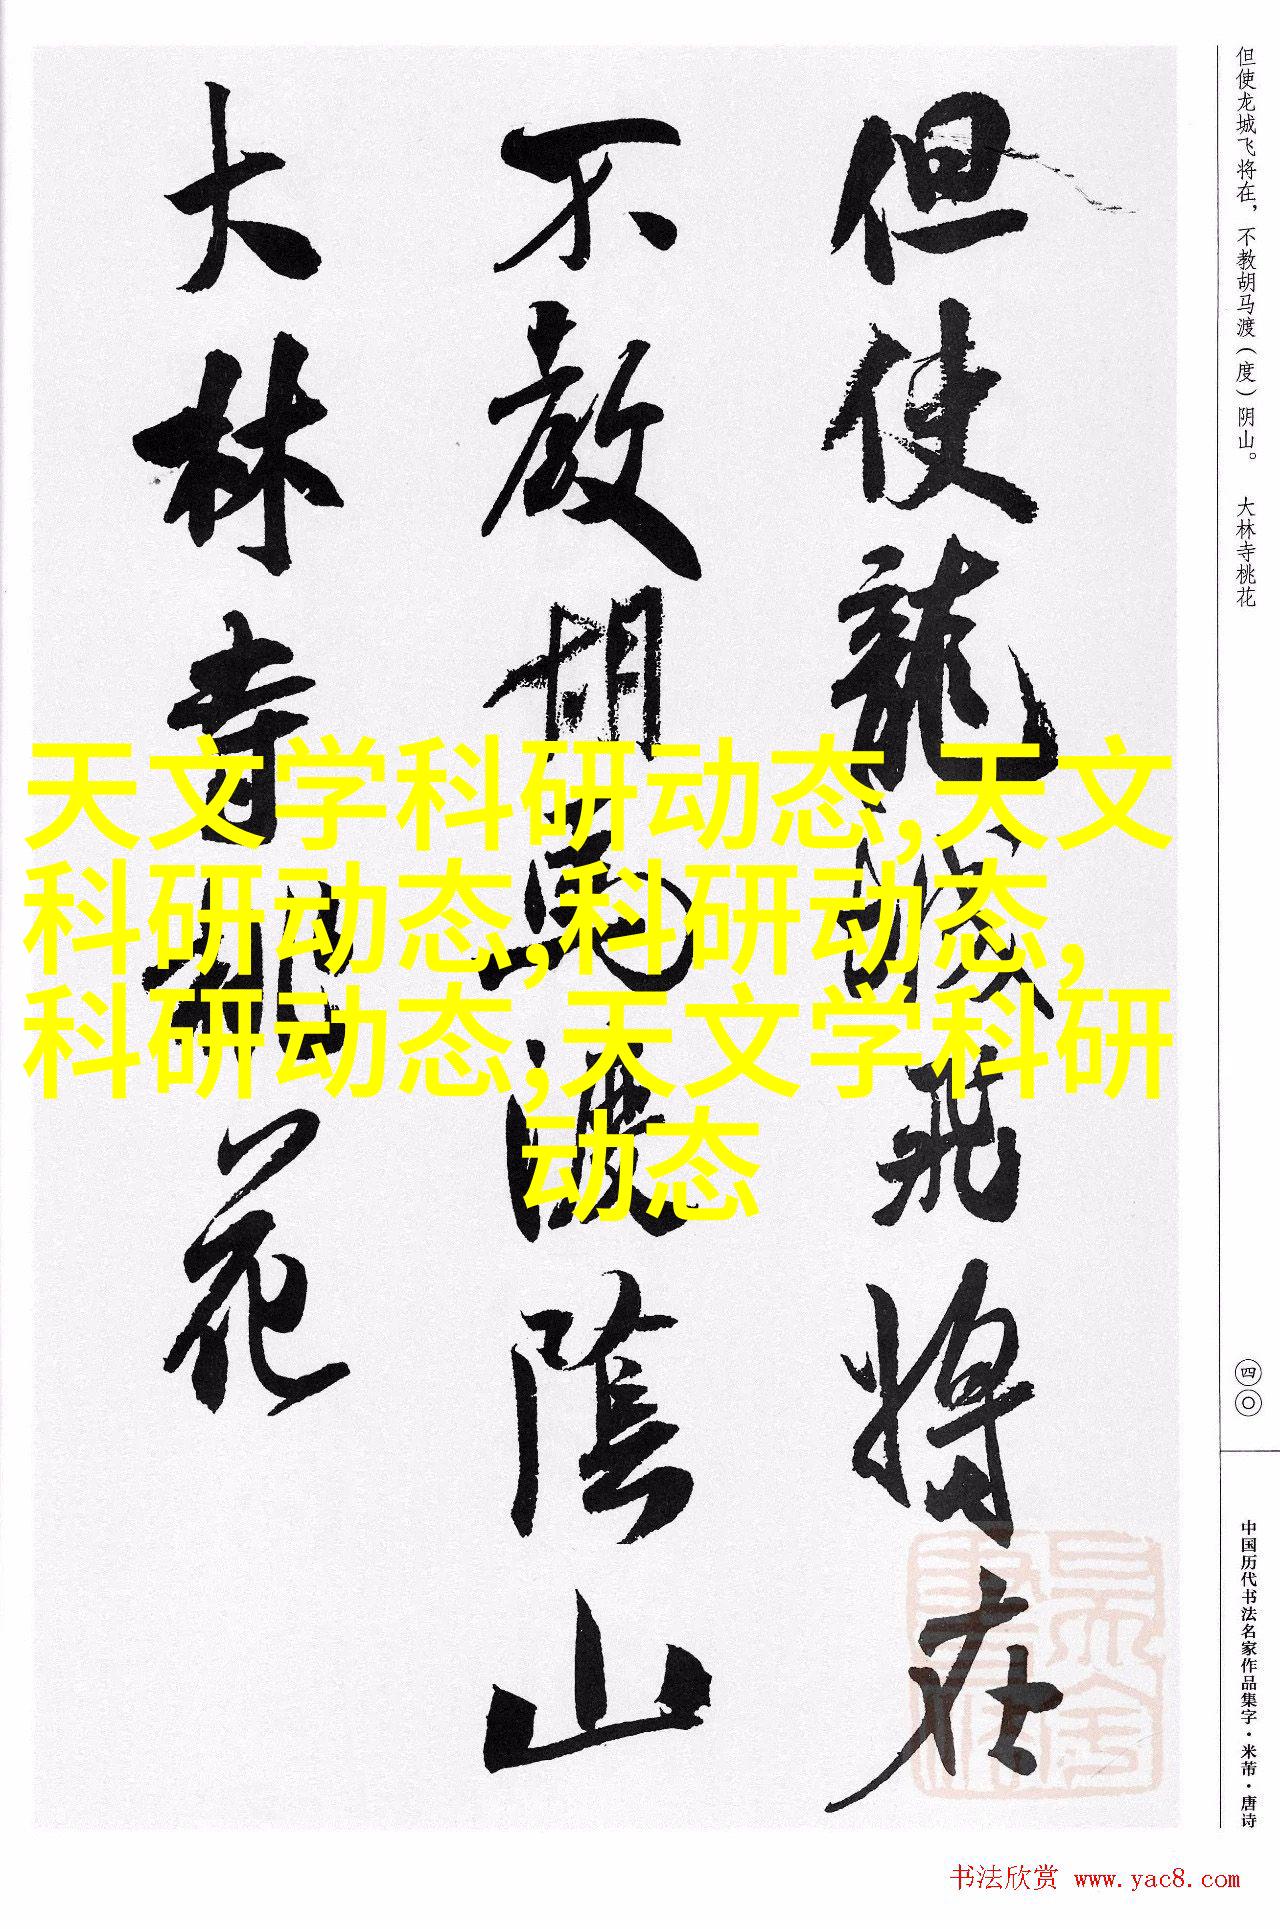 但使龍城飛將在
不教胡馬渡陰山
大林寺桃花
但使龙城飞将在，不教胡马渡（度）阴山。 大林寺桃花
四〇
中国历代书法名家作品集字·米芾·唐诗
天文学科研动态,天文
科研动态,科研动态,
科研动态,天文学科研
动态
书法欣赏 www.yac8.com